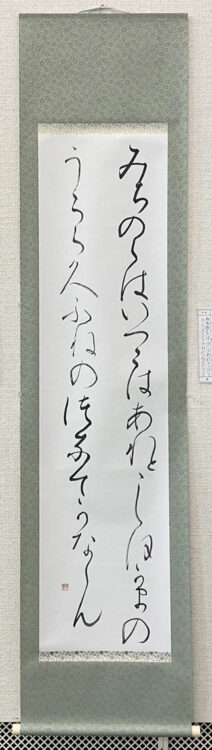 みちのくはいつくはあれとしほかまの
うらこく不ねの徒那てかなしも